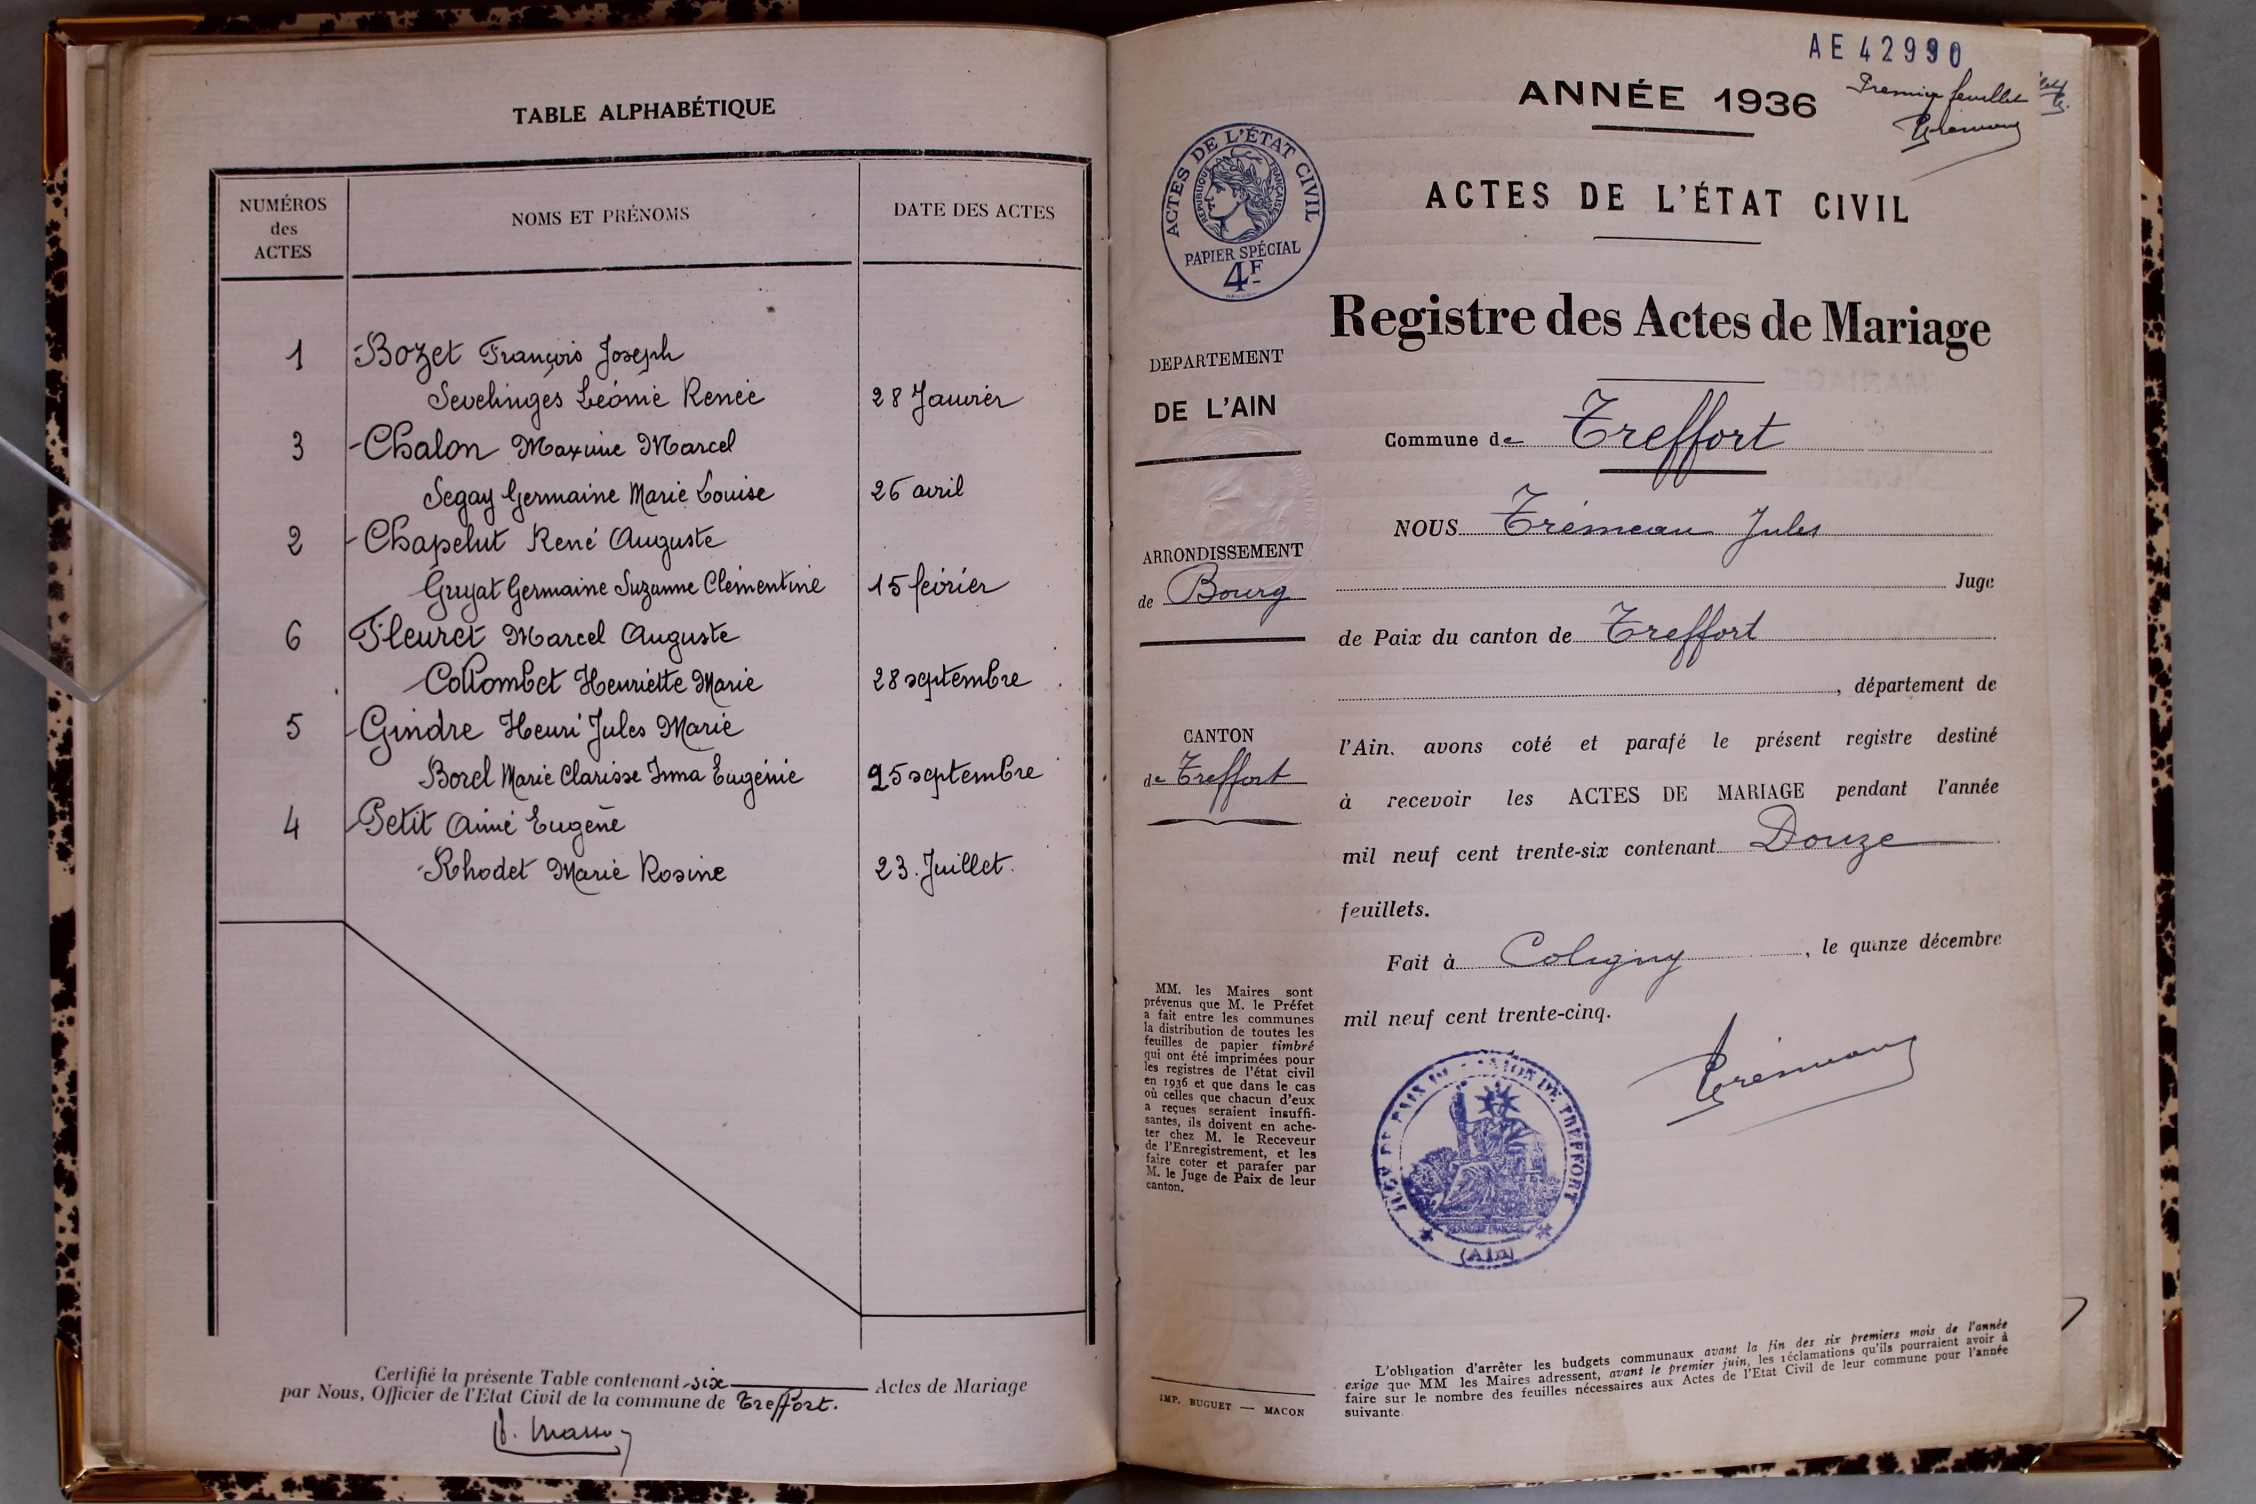 TABLE ALPHABÉTIQUE
NUMÉROS
des
ACTES
NOMS ET PRÉNOMS
DATE DES ACTES
1 Bozet François Joseph
Sevelinges Léonie Renée 28 Janvier
3 Chalon Maxime Marcel
Segay Germaine Marie Louise 26 avril
2 Chapelut René Auguste
Gruyat Germaine Suzanne Clémentine 15 février
6 Fleuret Marcel Auguste
Collombet Henriette Marie 28 septembre
5 Gindre Henri Jules Marie
Borel Marie Clarisse Irma Eugénie 25 septembre
4 Petit Aimé Eugène
Rhodet Marie Rosine 23. Juillet.
Certifié la présente Table contenant six Actes de Mariage
par Nous, Officier de l'Etat Civil de la commune de Treffort.
AE 42990
Premier feuillet
ANNÉE 1936
ACTES DE L'ÉTAT CIVIL
RÉPUBLIQUE FRANÇAISE
PAPIER SPÉCIAL
4F
ACTES DE L'ÉTAT CIVIL
Registre des Actes de Mariage
DEPARTEMENT
DE L'AIN
ARRONDISSEMENT
de Bourg
CANTON
de Treffort
Commune de Treffort
NOUS Trémeau Jules
Juge
de Paix du canton de Treffort
, département de
l'Ain. avons coté et parafé le présent registre destiné
à recevoir les ACTES DE MARIAGE pendant l'année
mil neuf cent trente-six contenant Douze
feuillets.
Fait à Coligny, le quinze décembre
mil neuf cent trente-cinq.
Trémeau
MM. les Maires sont
prévenus que M. le Préfet
a fait entre les communes
la distribution de toutes les
feuilles de papier timbré
qui ont été imprimées pour
les registres de l'état civil
en 1936 et que dans le cas
où celles que chacun d'eux
a reçues seraient insuffi-
santes, ils doivent en ache-
ter chez M. le Receveur
de l'Enregistrement, et les
faire coter et parafer par
M. le Juge de Paix de leur
canton.
CANTON DE TREFFORT
(Ain)
L'obligation d'arrêter les budgets communaux avant la fin des six premiers mois de l'année
exige que MM les Maires adressent, avant le premier juin, les réclamations qu'ils pourraient avoir à
faire sur le nombre des feuilles nécessaires aux Actes de l'Etat Civil de leur commune pour l'année
suivante
IMP. BUGUET — MACON